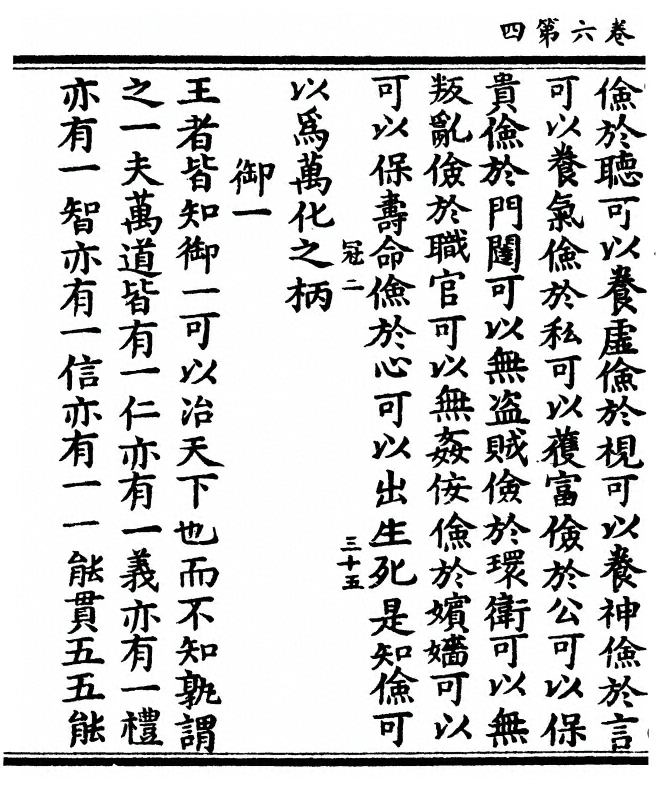 四第六卷
儉於聽可以養虛儉於視可以養神儉於言
可以養氣儉於私可以獲富儉於公可以保
貴儉於門闥可以無盜賊儉於環衛可以無
叛亂儉於職官可以無姦佞儉於嬪嬙可以
可以保壽命儉於心可以出生死是知儉可
冠二
三十五
以爲萬化之柄
御一
王者皆知御一可以治天下也而不知孰謂
之一夫萬道皆有一仁亦有一義亦有一禮
亦有一智亦有一信亦有一一能貫五五能